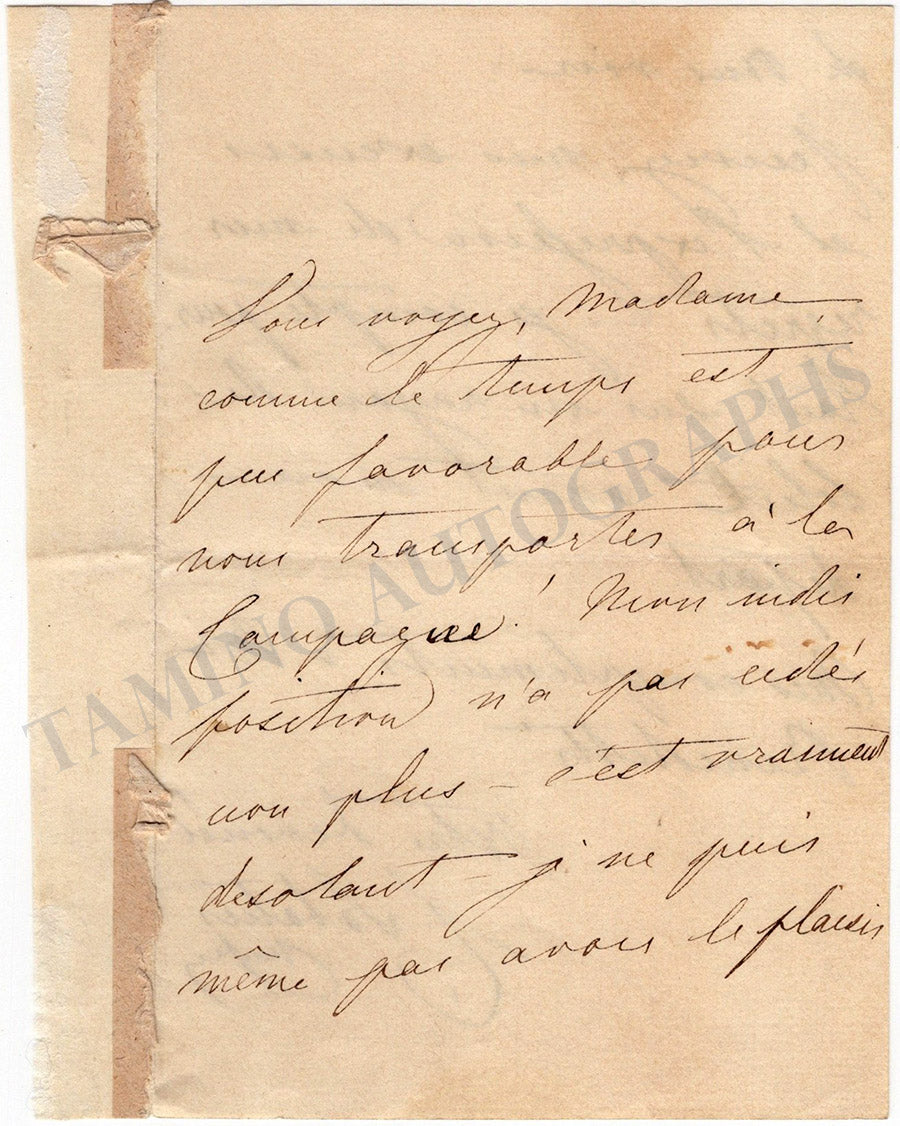 Vous voyez, Madame
comme le temps est
peu favorable pour
nous transporter à la
Campagne! Mon indis
position n'a pas cédé
non plus – c'est vraiment
desolant – je ne puis
même pas avoir le plaisir
TAMINO AUTOGRAPHS